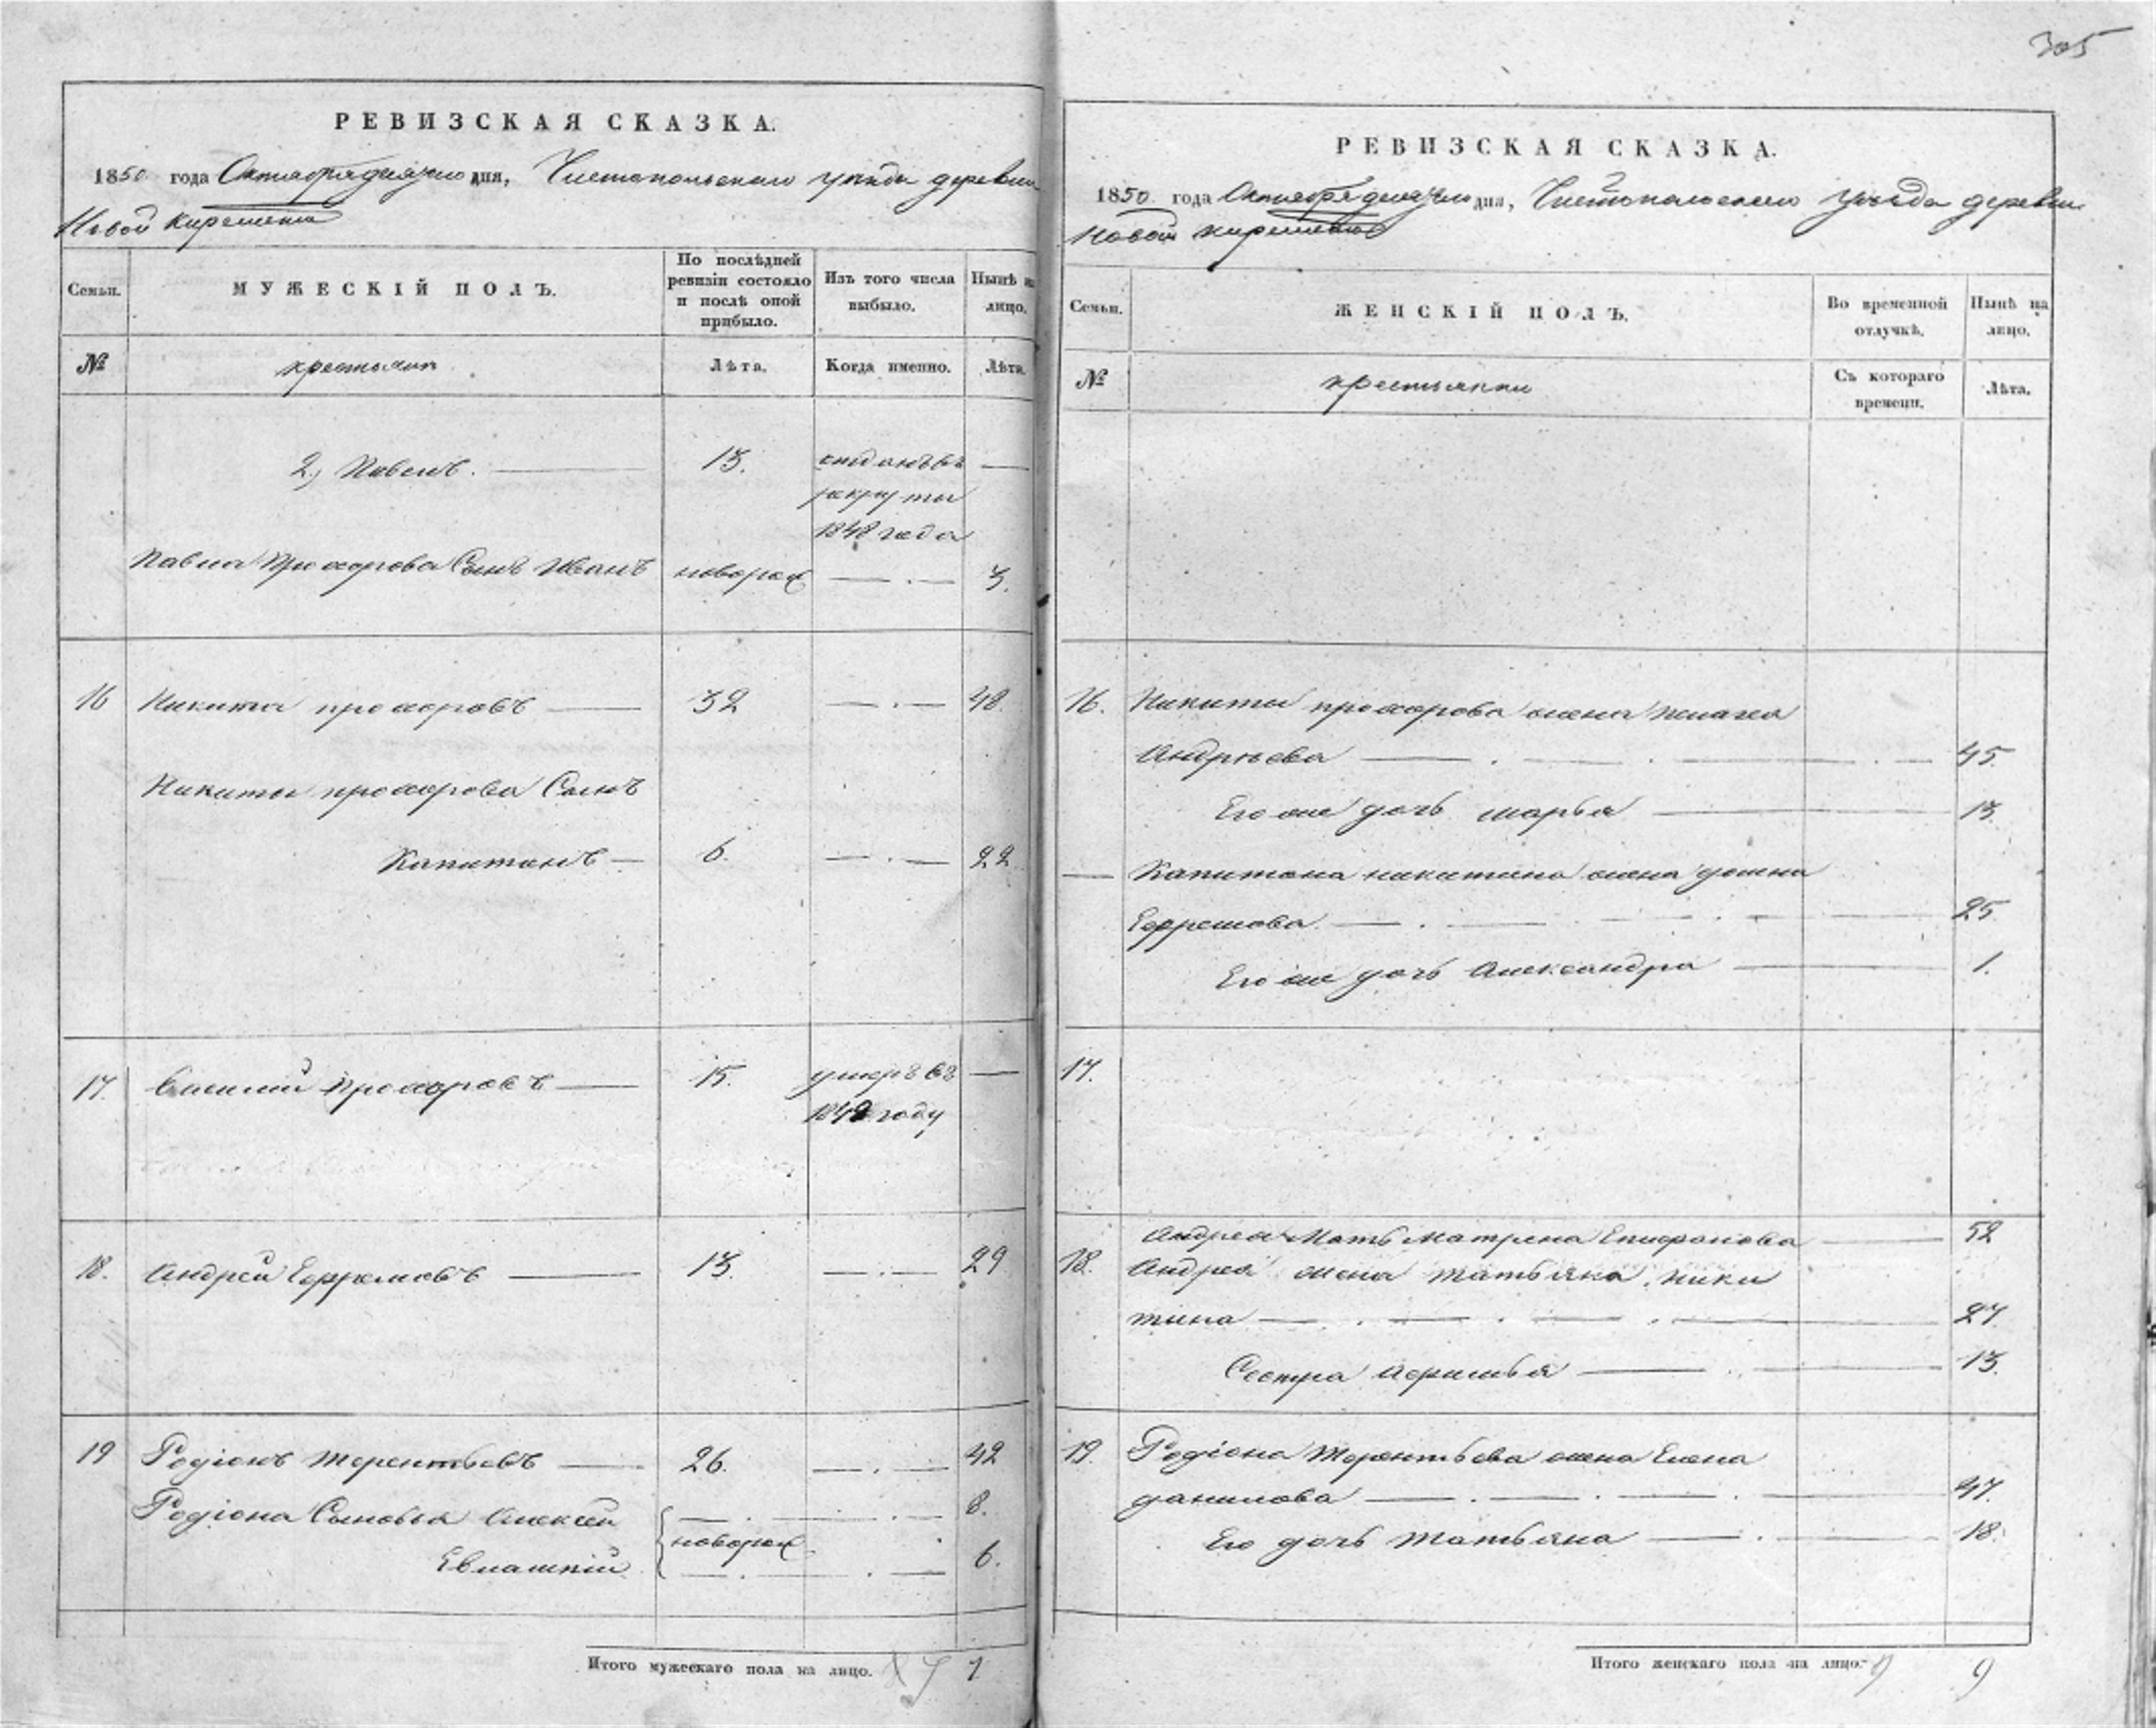 305
РЕВИЗСКАЯ СКАЗКА.
1850 года Октября дня, Чистопольского уезда деревни
Новой Киремети
Семьи. МУЖЕСКІЙ ПОЛЪ. По послѣдней ревизіи состояло и послѣ оной прибыло. Изъ того числа выбыло. Нынѣ на лицо.
№ крестьяне Лѣта. Когда именно. Лѣта.
2, Павелъ. 13. отданъ въ
рекруты
1848 года
Павла Прохорова Сынъ Иванъ новорож 3.
16 Никита прохоровъ 32 48.
Никиты прохорова Сынъ
Капитонъ 6. 22
17. Василий Прохоровъ 15. умеръ въ
1842 году
18. Андрей Ефремовъ 13. 29
19 Родіонъ Терентьевъ 26. 42
Родіона Сыновья Алексей 8.
новорож
Евлампій 6.
Итого мужескаго пола на лицо. 7 7
РЕВИЗСКАЯ СКАЗКА.
1850 года Октября дня, Чистопольского уезда деревни
Новой киремети
Семьи. ЖЕНСКІЙ ПОЛЪ. Во временной отлучкѣ. Нынѣ на лицо.
№ крестьянки Съ котораго времени. Лѣта.
16. Никиты прохорова жена пелагея
Андреева 45
Его же дочь марья 13
Капитона никитина жена домна
Ефремова 25
Его же дочь Александра 1.
17.
Андрея Мать Матрена Епифанова 52
18. Андрея жена татьяна ники
тина 27
Сестра Афимья 13.
19. Родіона Терентьева жена Елена
данилова 47.
Его дочь Татьяна 18.
Итого женскаго пола на лицо. 9 9